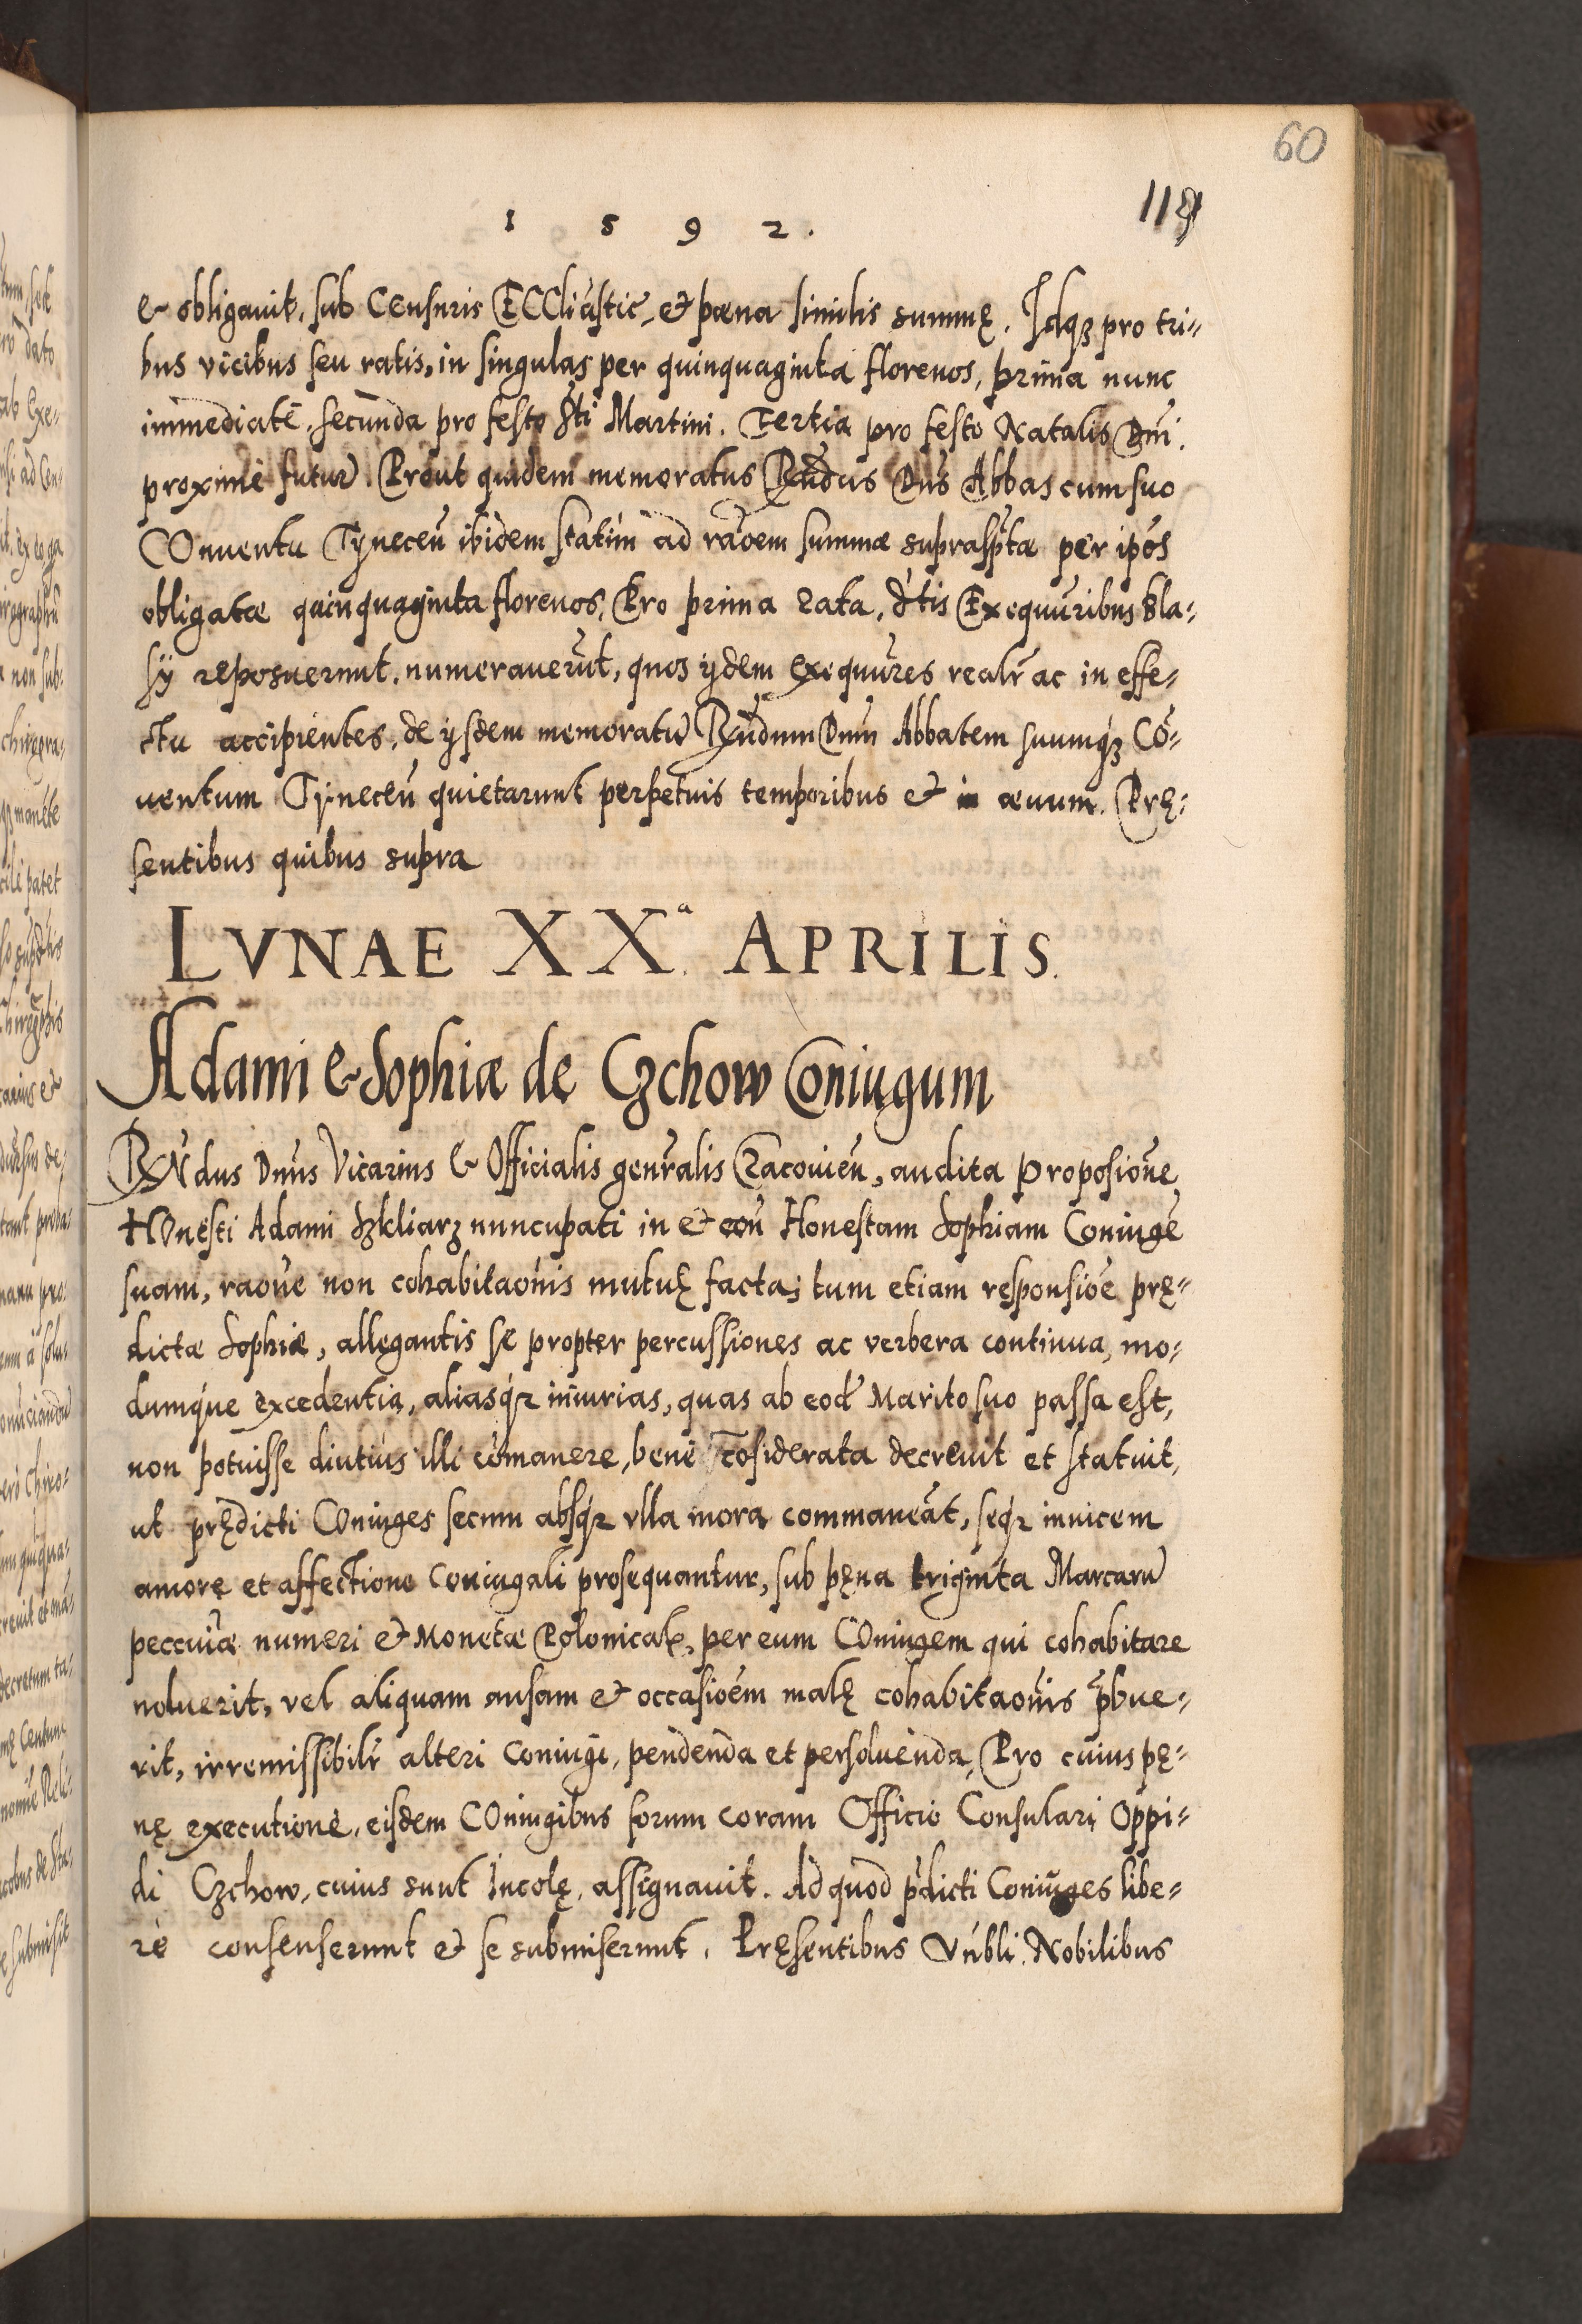 60
119
1 5 9 2.
& obligauit, sub Censuris ECCliasticę et pœna similis summę. Idqꝫ pro tri-
bus vicibus seu ratis, in singulas per quinquaginta florenos, prima nunc
immediatè, secunda pro festo Sti Martini. Tertia pro festo Natalis Dni.
proximè futuro. Prout quidem memoratus Rndus Dns Abbas cum suo
COnuentu Tynecen̄ ibidem statim ad rãoem summæ suprasptæ per ipõs
obligatæ quinquaginta florenos, Pro prima rata, dtis Exequũribus Bla-
sij reposuerunt, numerauerũt, quos ijdem exequũres realr̃ ac in effe-
ctu accipientes, de ijsdem memoratũ Rndum Dnm Abbatem suumqꝫ Cõ-
uentum Tynecen̄ quietarunt perpetuis temporibus et in æuum. Prę-
sentibus quibus supra
LVNAE XXª. APRILIS.
Adami & Sophiæ de Czchow Coniugum
RNdus Dnus Vicarius & Officialis genr̃alis Cracouien̄, audita Proposiõne
HOnesti Adami Szkliarz nuncupati in et con̄ Honestam Sophiam Coniugẽ
suam, raõne non cohabitaõnis mutuę facta; tum etiam responsiõe prę-
dictæ Sophiæ, allegantis se propter percussiones ac verbera continua, mo-
dumque excedentia, aliasqꝫ iniurias, quas ab eod̃ Marito suo passa est,
non potuisse diutiùs illi cõmanere, benè cõsiderata decreuit et statuit,
ut prędicti COniuges secum absqꝫ vlla mora commaneãt, seqꝫ inuicem
amore et affectione Coniugali prosequantur, sub pęna triginta Marcarũ
peccuiæ numeri et Monetæ Polonicał, per eum COniugem qui cohabitare
noluerit, vel aliquam ansam et occasiõem malę cohabitaõnis p̃bue-
rit, irremissibilr̃ alteri Coniugi, pendenda et persoluenda, Pro cuius pę-
nę executione, eisdem COniugibus forum coram Officio Consulari Oppi-
di Czchow, cuius sunt Incolę, assignauit. Ad quod p̃dicti Coniuges libe-
rè consenserunt et se submiserunt. Pręsentibus Vnbli. Nobilibus